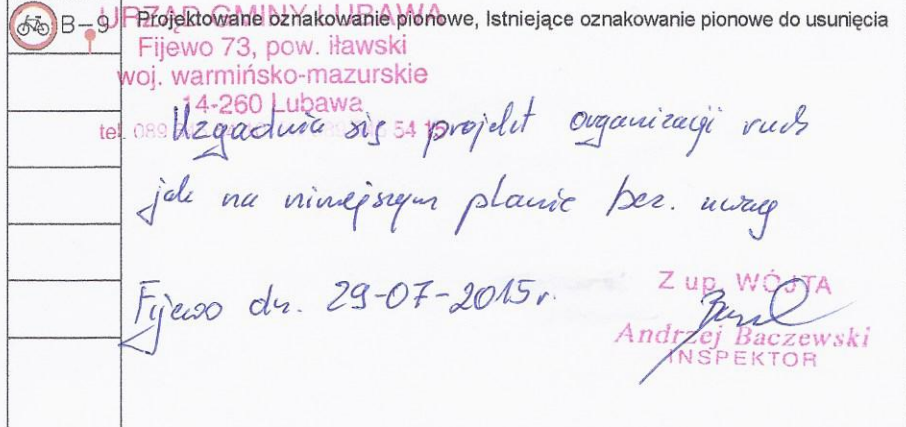 B-9 Projektowane oznakowanie pionowe, Istniejące oznakowanie pionowe do usunięcia
URZĄD GMINY LUBAWA
Fijewo 73, pow. iławski
woj. warmińsko-mazurskie
14-260 Lubawa
tel. 089 54 15
Uzgadnia się projekt organizacji ruch
jak na niniejszym planie bez. uwag
Fijewo dn. 29-07-2015r.
Z up. WÓJTA
Andrzej Baczewski
INSPEKTOR